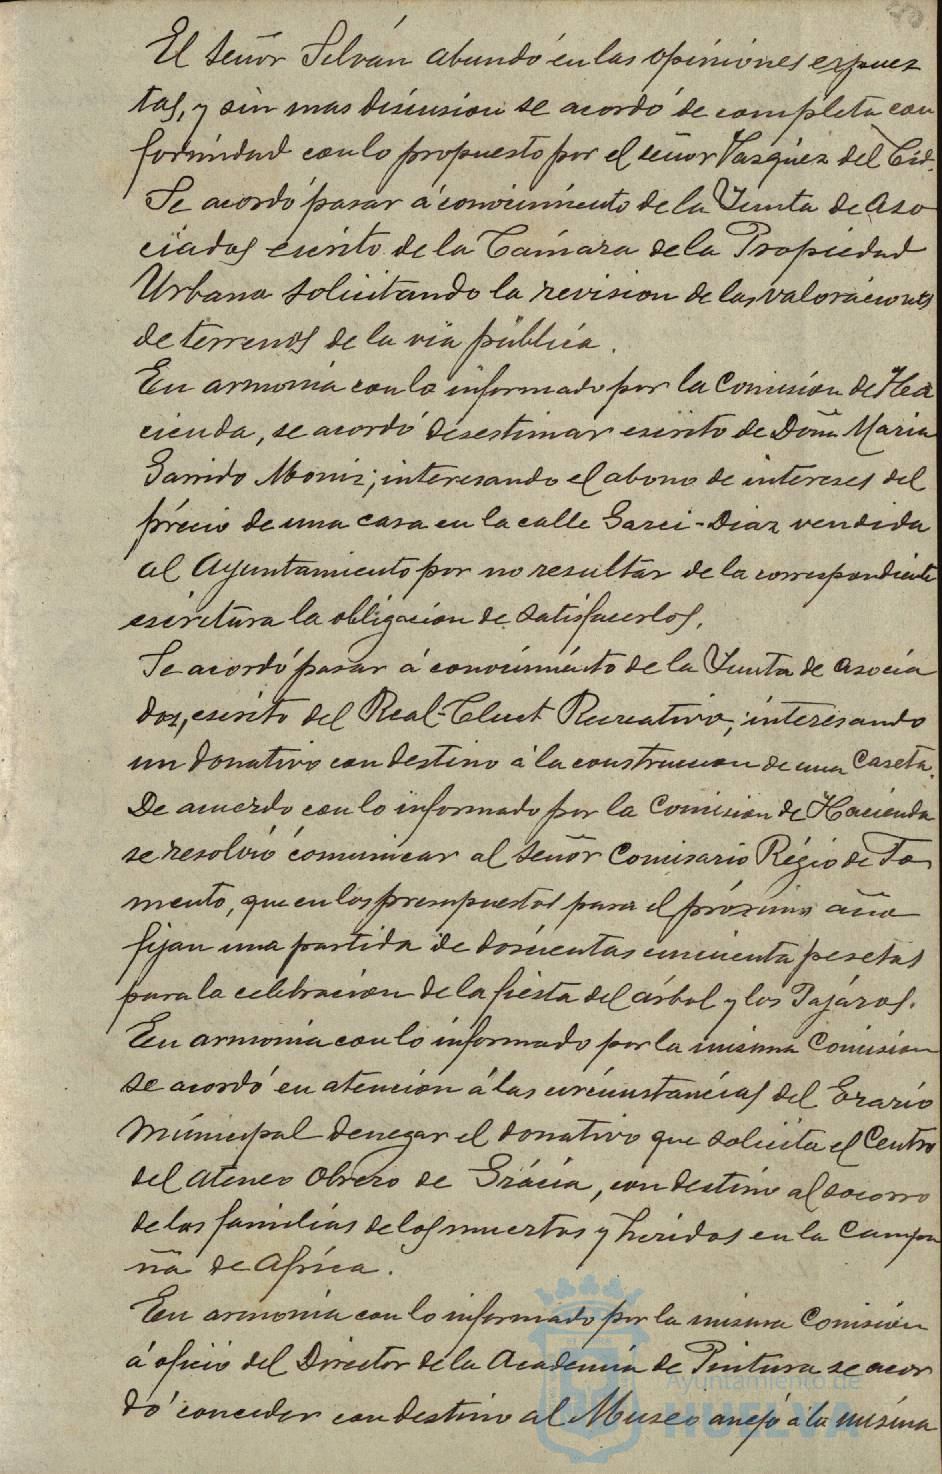 El señor Silván abundó en las opiniones espues
tas, y sin mas discusion se acordó de completa con
formidad con lo propuesto por el señor Vazquez del Cid.
Se acordó pasar á conocimiento de la Junta de Aso
ciados escrito de la Cámara de la Propiedad
Urbana solicitando la revision de las valoraciones
de terrenos de la via pública.
En armonia con lo informado por la Comisión de Ha
cienda, se acordó desestimar escrito de Doña Maria
Garrido Moniz; interesando el abono de intereses del
précio de una casa en la calle Garci-Diaz vendida
al Ayuntamiento por no resultar de la correspondiente
escritura la obligacion de satisfacerlos.
Se acordó pasar á conocimiento de la Junta de asocia
dos, escrito del Real-Club Recreativo, interesando
un donativo con destino á la construccion de una Caseta.
De acuerdo con lo informado por la Comision de Hacienda
se resolvió comunicar al señor Comisario Régio de Fo
mento, que en los presupuestos para el próximo año
fijan una partida de doscientas cincuenta pesetas
para la celebracion de la fiesta del árbol y los Pajáros.
En armonia con lo informado por la misma Comision
se acordó en atencion á las circunstancias del Erario
Múnicipal denegar el donativo que solicita el Centro
del Ateneo Obrero de Grácia, con destino al socorro
de las familias de los muertos y heridos en la Campa
ña de Africa.
En armonia con lo informado por la misma Comisión
á oficio del Director de la Academia de Pintura se acor
dó conceder con destino al Museo anejo á la misma
Ayuntamiento de
HUELVA